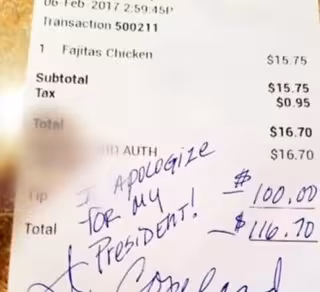 06 Feb 2017 2:59:45P
Transaction 500211
1 Fajitas Chicken $15.75
Subtotal $15.75
Tax $0.95
Total $16.70
AUTH $16.70
I APOLOGIZE
FOR MY
PRESIDENT!
Tip $ 100.00
Total $ 116.70
Copeland